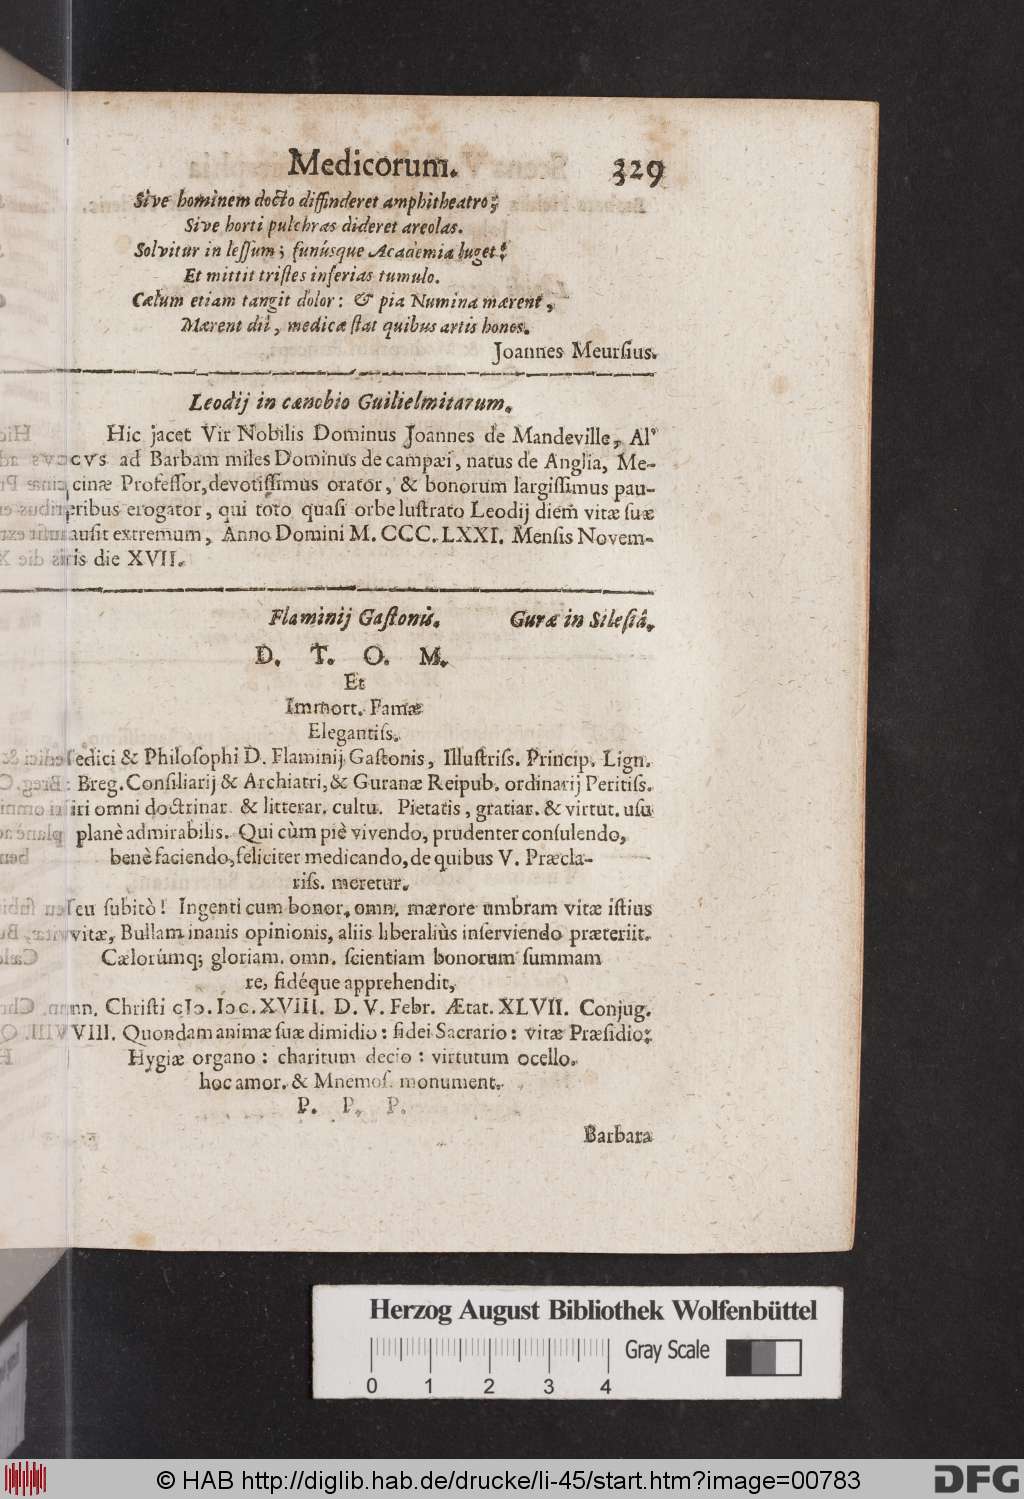 Medicorum. 329
Sive hominem docto diffinderet amphitheatro;
Sive horti pulchras dideret areolas.
Solvitur in lessum; funúsque Academia luget:
Et mittit tristes inferias tumulo.
Cælum etiam tangit dolor: & pia Numina mærent,
Mærent dii, medicæ stat quibus artis honos.
Joannes Meursius.
Leodij in cænobio Guilielmitarum.
Hic jacet Vir Nobilis Dominus Joannes de Mandeville, Al'
cvs ad Barbam miles Dominus de campæi, natus de Anglia, Me-
cinæ Professor, devotissimus orator, & bonorum largissimus pau-
eribus erogator, qui toto quasi orbe lustrato Leodij diem vitæ suæ
ausit extremum, Anno Domini M. CCC. LXXI. Mensis Novem-
ris die XVII.
Flaminij Gastonis. Guræ in Silesiâ.
D. T. O. M.
Et
Immort. Famæ
Elegantiss.
edici & Philosophi D. Flaminij Gastonis, Illustriss. Princip. Lign.
Breg. Consiliarij & Archiatri, & Guranæ Reipub. ordinarij Peritiss.
iri omni doctrinar. & litterar. cultu. Pietatis, gratiar. & virtut. usu
planè admirabilis. Qui cùm piè vivendo, prudenter consulendo,
benè faciendo, feliciter medicando, de quibus V. Præcla-
riss. meretur.
eu subitò! Ingenti cum bonor. omn. mærore umbram vitæ istius
vitæ, Bullam inanis opinionis, aliis liberaliùs inserviendo præteriit.
Cælorúmq; gloriam. omn. scientiam bonorum summam
re, fidéque apprehendit,
nn. Christi cIↄ. Iↄc. XVIII. D. V. Febr. Ætat. XLVII. Conjug.
VIII. Quondam animæ suæ dimidio: fidei Sacrario: vitæ Præsidio:
Hygiæ organo: charitum decio: virtutum ocello.
hoc amor. & Mnemos. monument.
P. P. P.
Barbara
Herzog August Bibliothek Wolfenbüttel
Gray Scale
0 1 2 3 4
© HAB http://diglib.hab.de/drucke/li-45/start.htm?image=00783
DFG